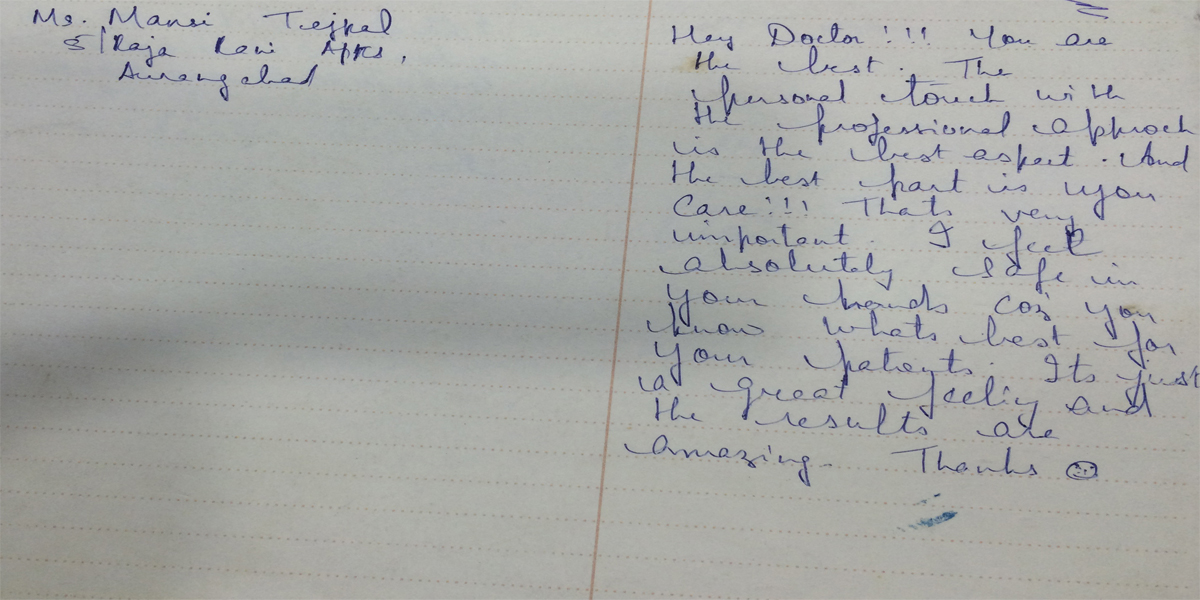 Ms. Mansi Tejpal
5/Raja Ravi Appts,
Aurangabad
Hey Doctor!!! You are
the best. The
personal touch with
the professional approch
is the best aspect. And
the best part is you
Care!!! Thats very
important. I feel
absolutely safe in
your hands coz you
know whats best for
your patients. Its just
a great feeling and
the results are
amazing. Thanks ☺